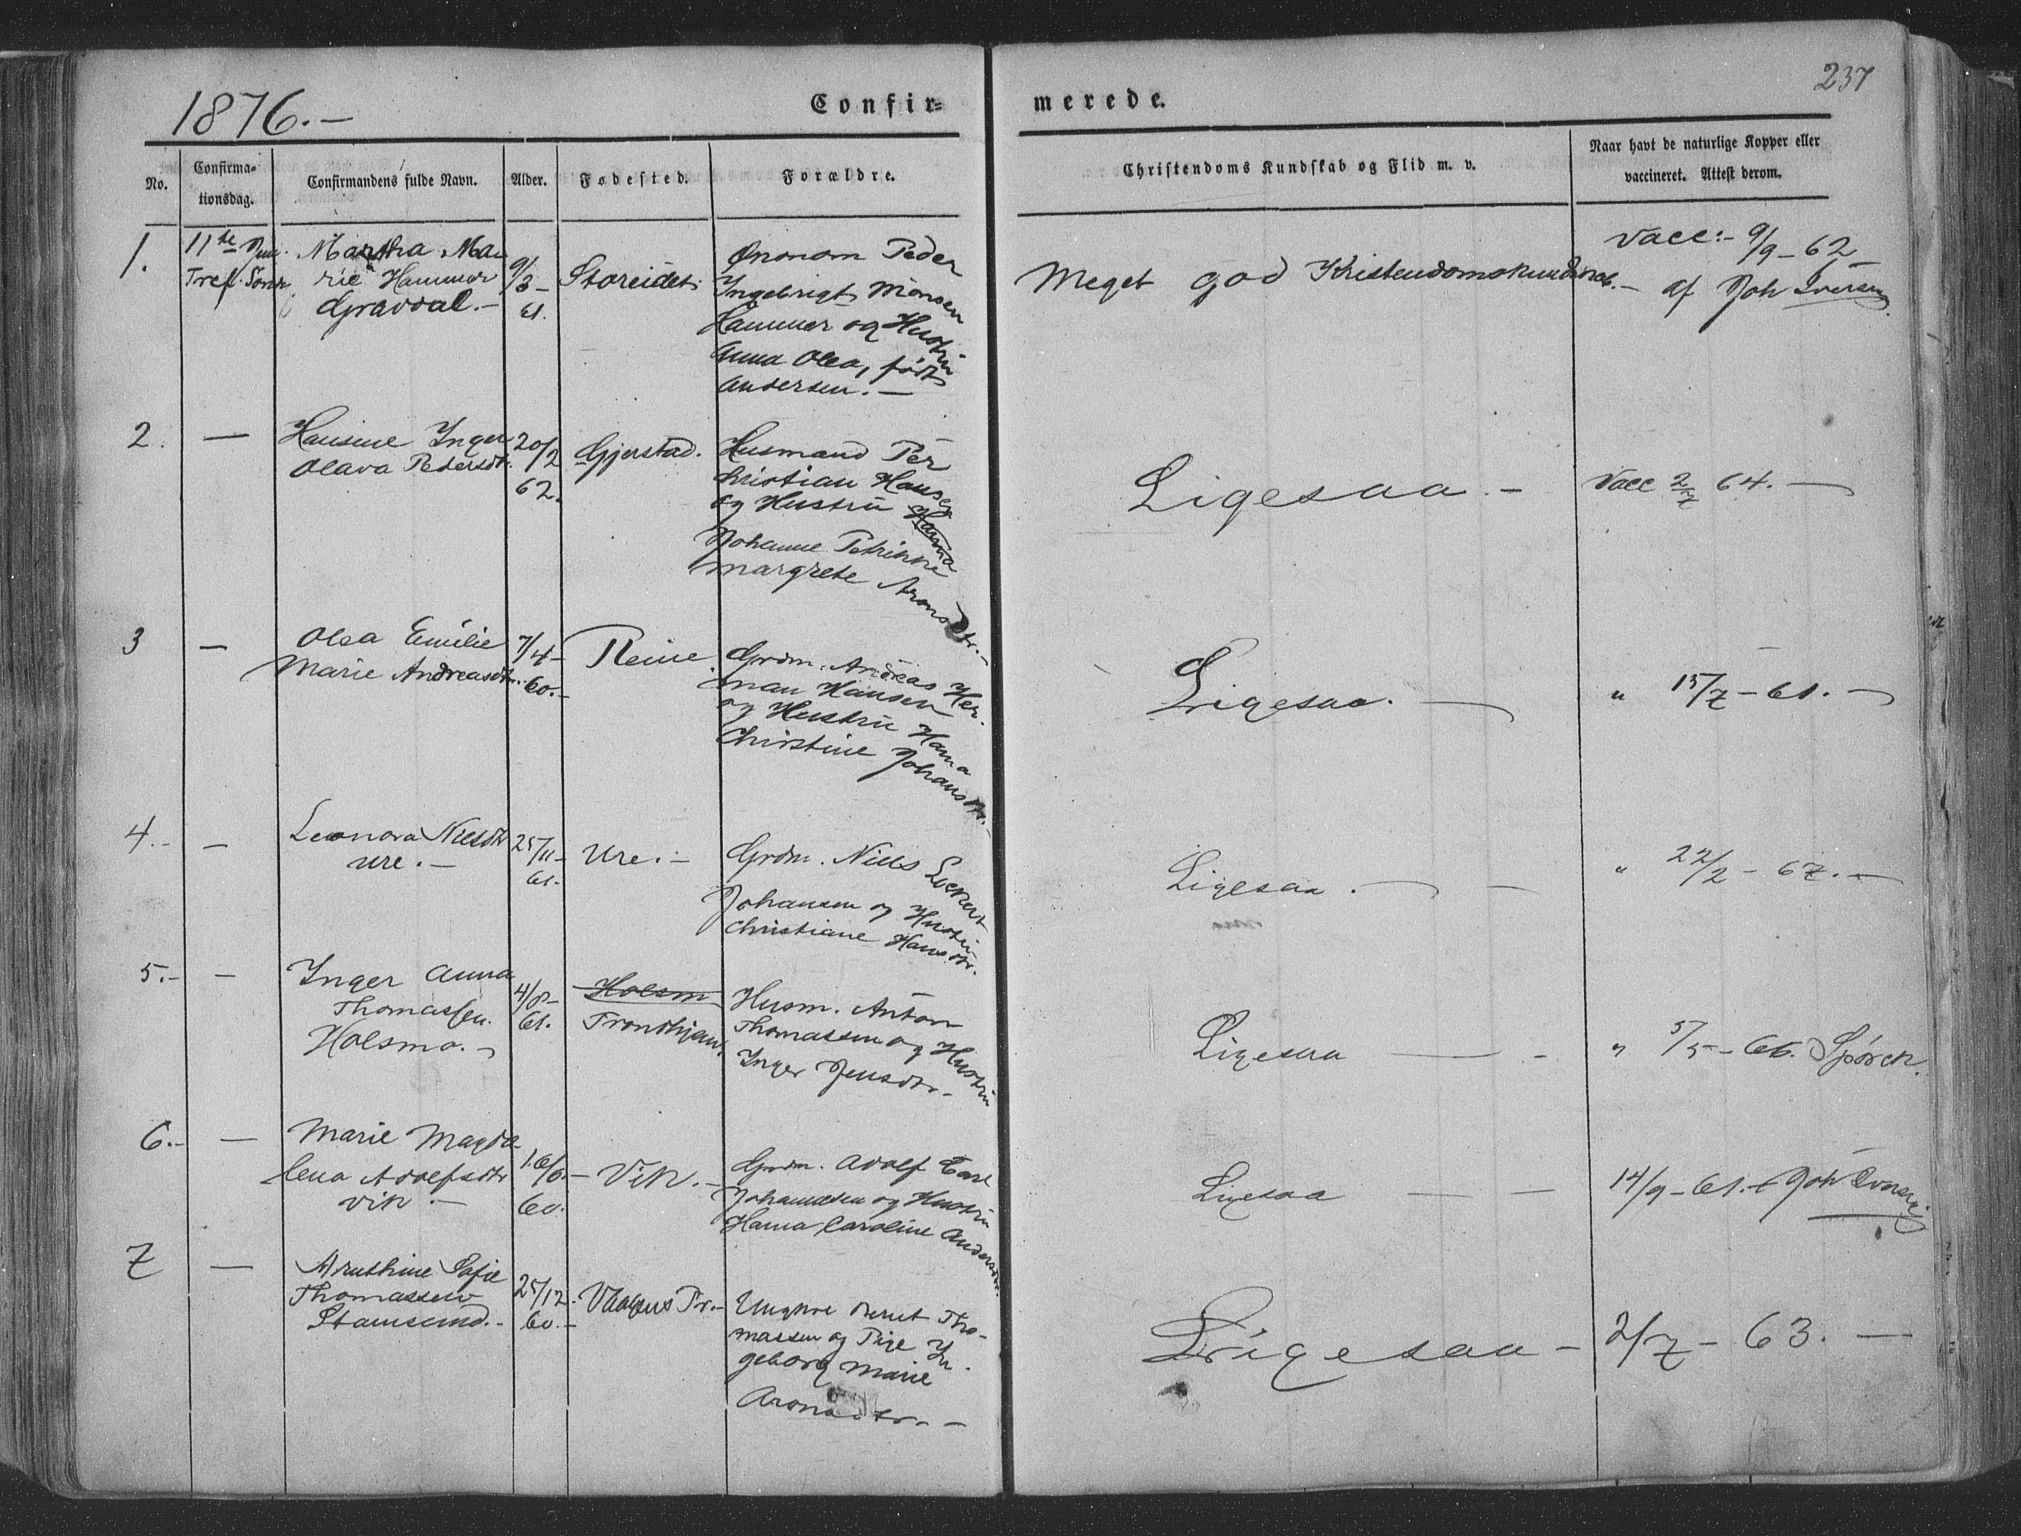 237
1876.-
Confir=
merede.
No.
Confirma-
tionsdag.
Confirmandens fulde Navn.
Alder.
Fødested.
Forældre.
Christendoms Kundskab og Flid m. v.
Naar havt de naturlige Kopper eller
vaccineret. Attest derom.
1.
11te Juni
Tref. Sønd
Martha Ma
rie Hammer
Gravdal.-
9/3-
61.
Storeidet.
Peder
Ingebrigt Monsen
Hammer og Hustru
Anna Olea, født
Andersen.-
Meget god Kristendomskundskab.-
Vacc:- 9/9-62
af Joh Iversen.
2.
-
Hansine Inger
Olava Pedersdtr.
20/2
62.
Gjerstad.
Husmand Per
Christian Hansen
og Hustru Hanna
Johanne Petrikke
Margrete Aronsdtr.-
Ligesaa.-
Vacc 2/7 64.-
3
-
Olea Emilie
Marie Andreasdtr.
7/4-
60.-
Reine.
Grdm. Andreas Her-
man Hansen
og Hustru Hanna
Christine Johansdtr.-
Ligesaa.-
" 15/7-61.-
4.-
-
Leonora Nilsdtr
Ure.-
25/11-
61.
Ure.-
Grdm. Nils Lockert
Johansen og Hustru
Christiane Hansdtr.
Ligesaa.-
" 22/2-67.-
5.-
-
Inger Anna
Thomassen.
Holsmo.-
4/8-
61.
Holsm
Trondhjem.
Husm. Anton
Thomassen og Hustru
Inger Jensdtr.-
Ligesaa - -
" 5/5-66.
6.-
-
Marie Magda-
lena Adolfsdtr
Vik.-
16/6-
60.
Vik.-
Grdm. Adolf Carl
Johannesen og Hustru
Hanna Caroline Andersdtr.
Ligesaa - -
14/9-61. af Joh Iversen
7
-
Sofie
Thomassen
Stamsund.-
25/12.
60.-
Vaagens Pr.-
Ungkar Bernt Tho-
massen og Pige In-
geborg Marie
Aronsdtr.-
Ligesaa-
2/7-63.-